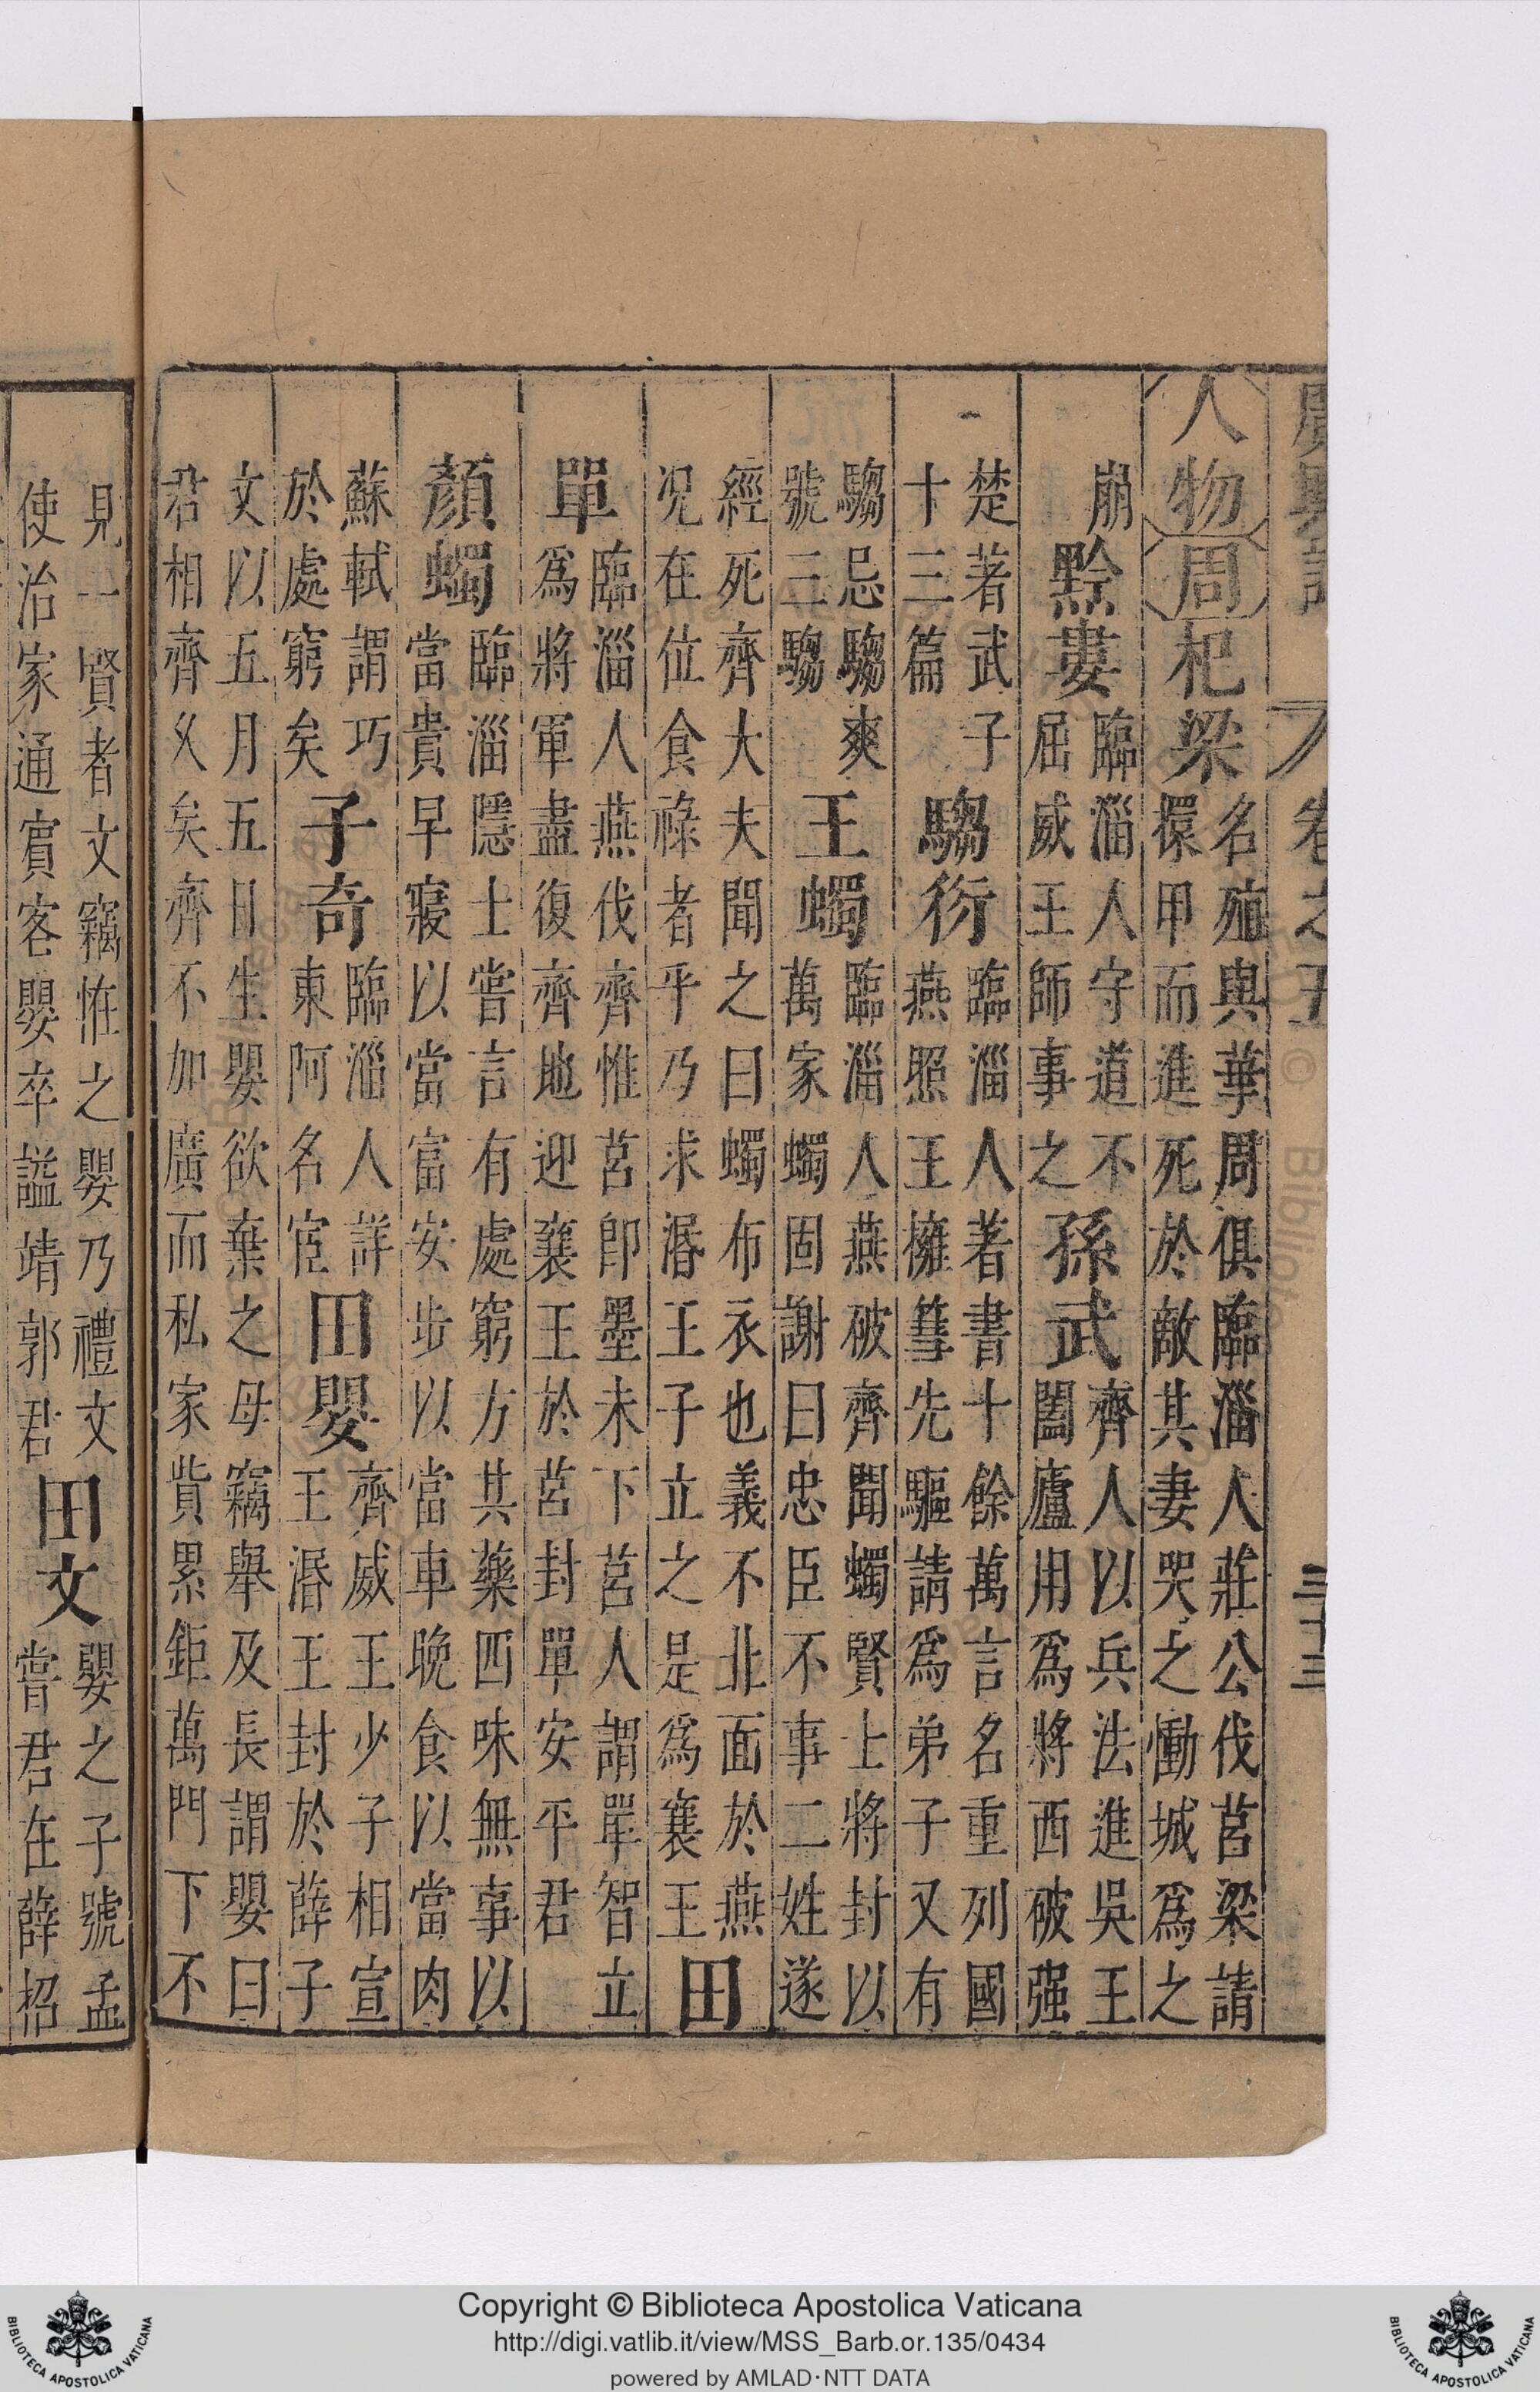 廣輿記 卷之五 三十三
人物 周 杞梁 名殖與華周俱臨淄人莊公伐莒梁請
還甲而進死於敵其妻哭之慟城爲之
崩 黔婁 臨淄人守道不
屈威王師事之 孫武 齊人以兵法進吳王
闔廬用爲將西破强
楚著武子
十三篇 騶衍 臨淄人著書十餘萬言名重列國
燕照王擁篲先驅請爲弟子又有
騶忌騶奭
號三騶 王蠋 臨淄人燕破齊聞蠋賢上將封以
萬家蠋固謝曰忠臣不事二姓遂
經死齊大夫聞之曰蠋布衣也義不北面於燕
况在位食祿者乎乃求湣王子立之是爲襄王 田
單 臨淄人燕伐齊惟莒卽墨未下莒人謂單智立
爲將軍盡復齊地迎襄王於莒封單安平君
顏蠋 臨淄隱士嘗言有處窮方其藥四味無事以
當貴早寢以當富安步以當車晚食以當肉
蘇軾謂巧
於處窮矣 子奇 臨淄人詳
東阿名宦 田嬰 齊威王少子相宣
王湣王封於薛子
文以五月五日生嬰欲棄之母竊舉及長謂嬰曰
君相齊久矣齊不加廣而私家貲累鉅萬門下不
見一賢者文竊恠之嬰乃禮文
使治家通賓客嬰卒謚靖郭君 田文 嬰之子號孟
嘗君在薛招
Copyright © Biblioteca Apostolica Vaticana
http://digi.vatlib.it/view/MSS_Barb.or.135/0434
powered by AMLAD·NTT DATA
BIBLIOTECA APOSTOLICA VATICANA
BIBLIOTECA APOSTOLICA VATICANA